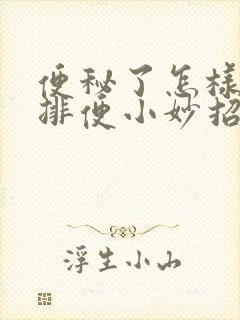 便秘了怎様
排便小妙招
浮生小山